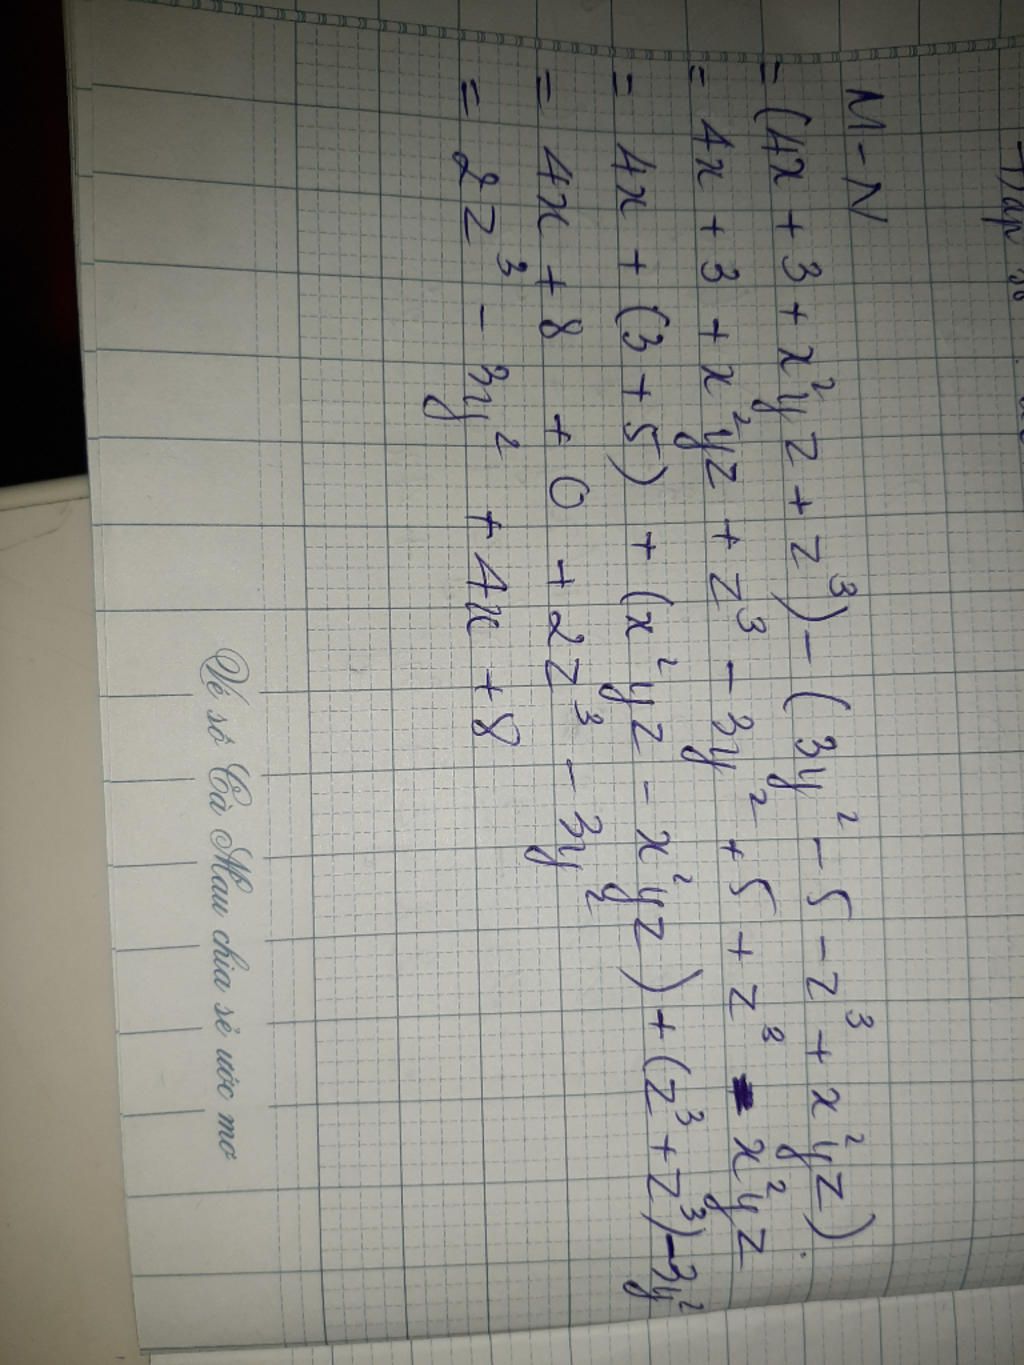 M - N
= (4x + 3 + x²yz + z³) - (3y² - 5 - z³ + x²yz)
= 4x + 3 + x²yz + z³ - 3y² + 5 + z³ - x²yz
= 4x + (3 + 5) + (x²yz - x²yz) + (z³ + z³) - 3y²
= 4x + 8 + 0 + 2z³ - 3y²
= 2z³ - 3y² + 4x + 8
Vé số Cà Mau chia sẻ ước mơ